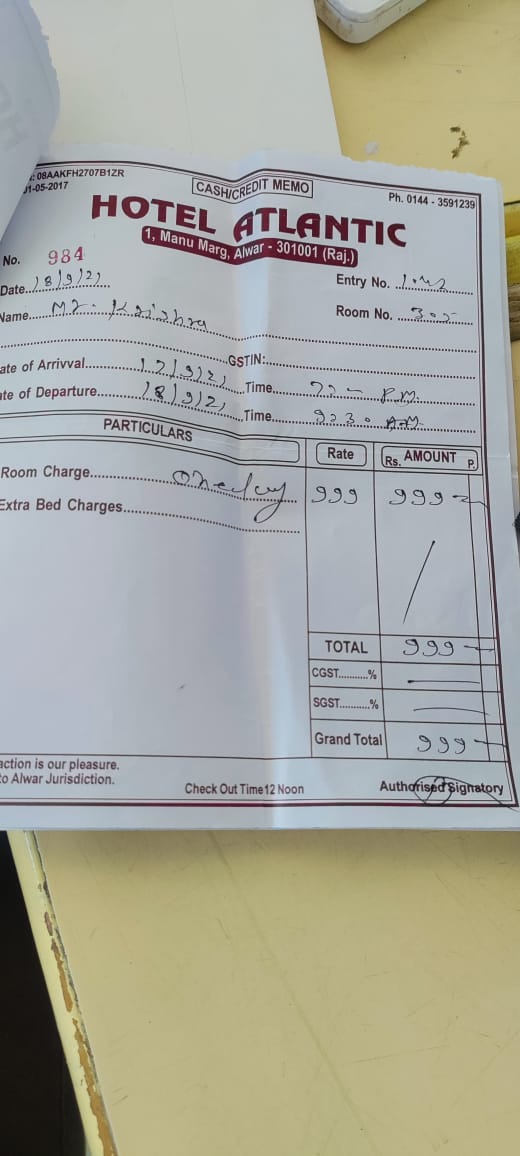 : 08AAKFH2707B1ZR
01-05-2017
CASH/CREDIT MEMO
Ph. 0144 - 3591239
HOTEL ATLANTIC
1, Manu Marg, Alwar - 301001 (Raj.)
No. 984
Entry No.
Date 18/9/21
Room No. 305
Name Mr. Krishna
GSTIN:
ate of Arrivval 17/9/21 Time P.M.
te of Departure 18/9/21 Time 9230 A.M.
PARTICULARS Rate Rs. AMOUNT P.
Room Charge oneday 999 999
Extra Bed Charges
TOTAL 999
CGST...........%
SGST...........%
Grand Total 999
action is our pleasure.
to Alwar Jurisdiction.
Check Out Time 12 Noon
Authorised Signatory